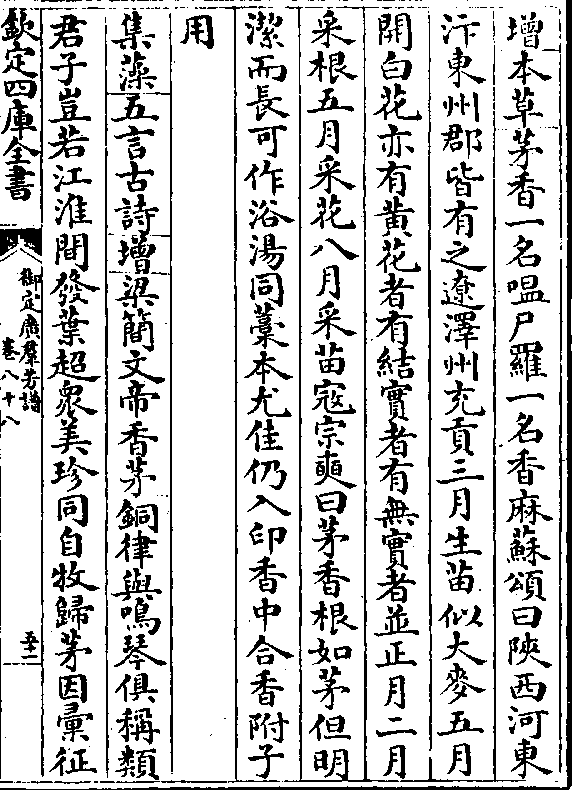 增本草茅香一名嗢尸羅一名香麻蘇頌曰陝西河東
汴東州郡皆有之遼澤州充貢三月生苗似大麥五月
開白花亦有黃花者有結實者有無實者並正月二月
采根五月采花八月采苗寇宗奭曰茅香根如茅但明
潔而長可作浴湯同藁本尤佳仍入印香中合香附子
用
集藻五言古詩增梁簡文帝香茅銅律與鳴琴俱稱類
君子豈若江淮間發葉超衆美珍同自牧歸茅因彚征
欽定四庫全書
御定廣羣芳譜
卷八十八
五十二